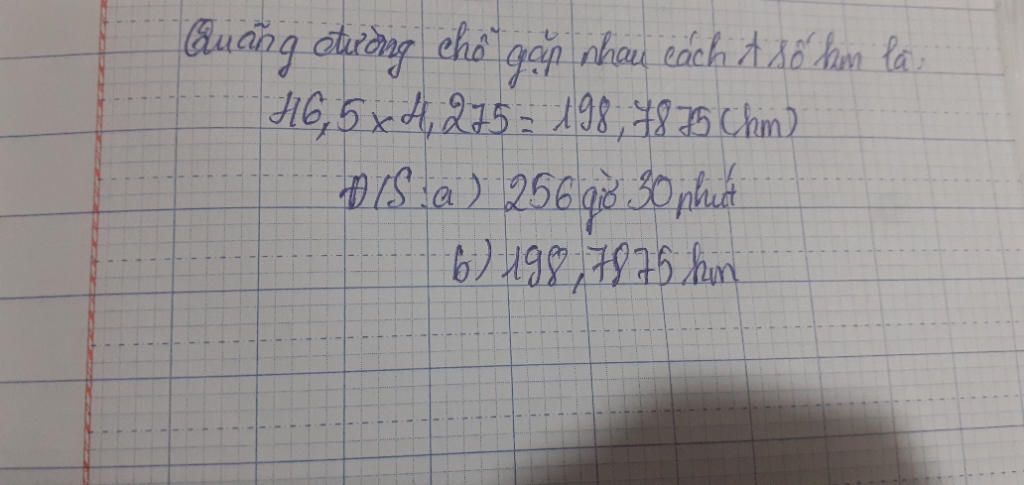 Quãng đường chỗ gặp nhau cách A số km là:
46,5 x 4,275 = 198,7875 (km)
Đ/S: a) 256 giờ 30 phút
b) 198,7875 km